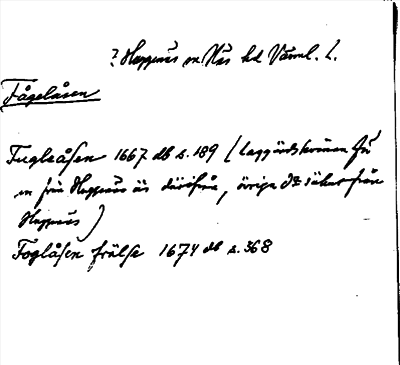 ? Heppnäs sn Näs hd Värml. L.
Fågelåsen
Fugleåsen 1667 db s. 189 (Laggärdskvinnan
en från Heppnäs är därifrån, övriga från
Heppnäs)
Foglåsen frälse 1674 db s. 368